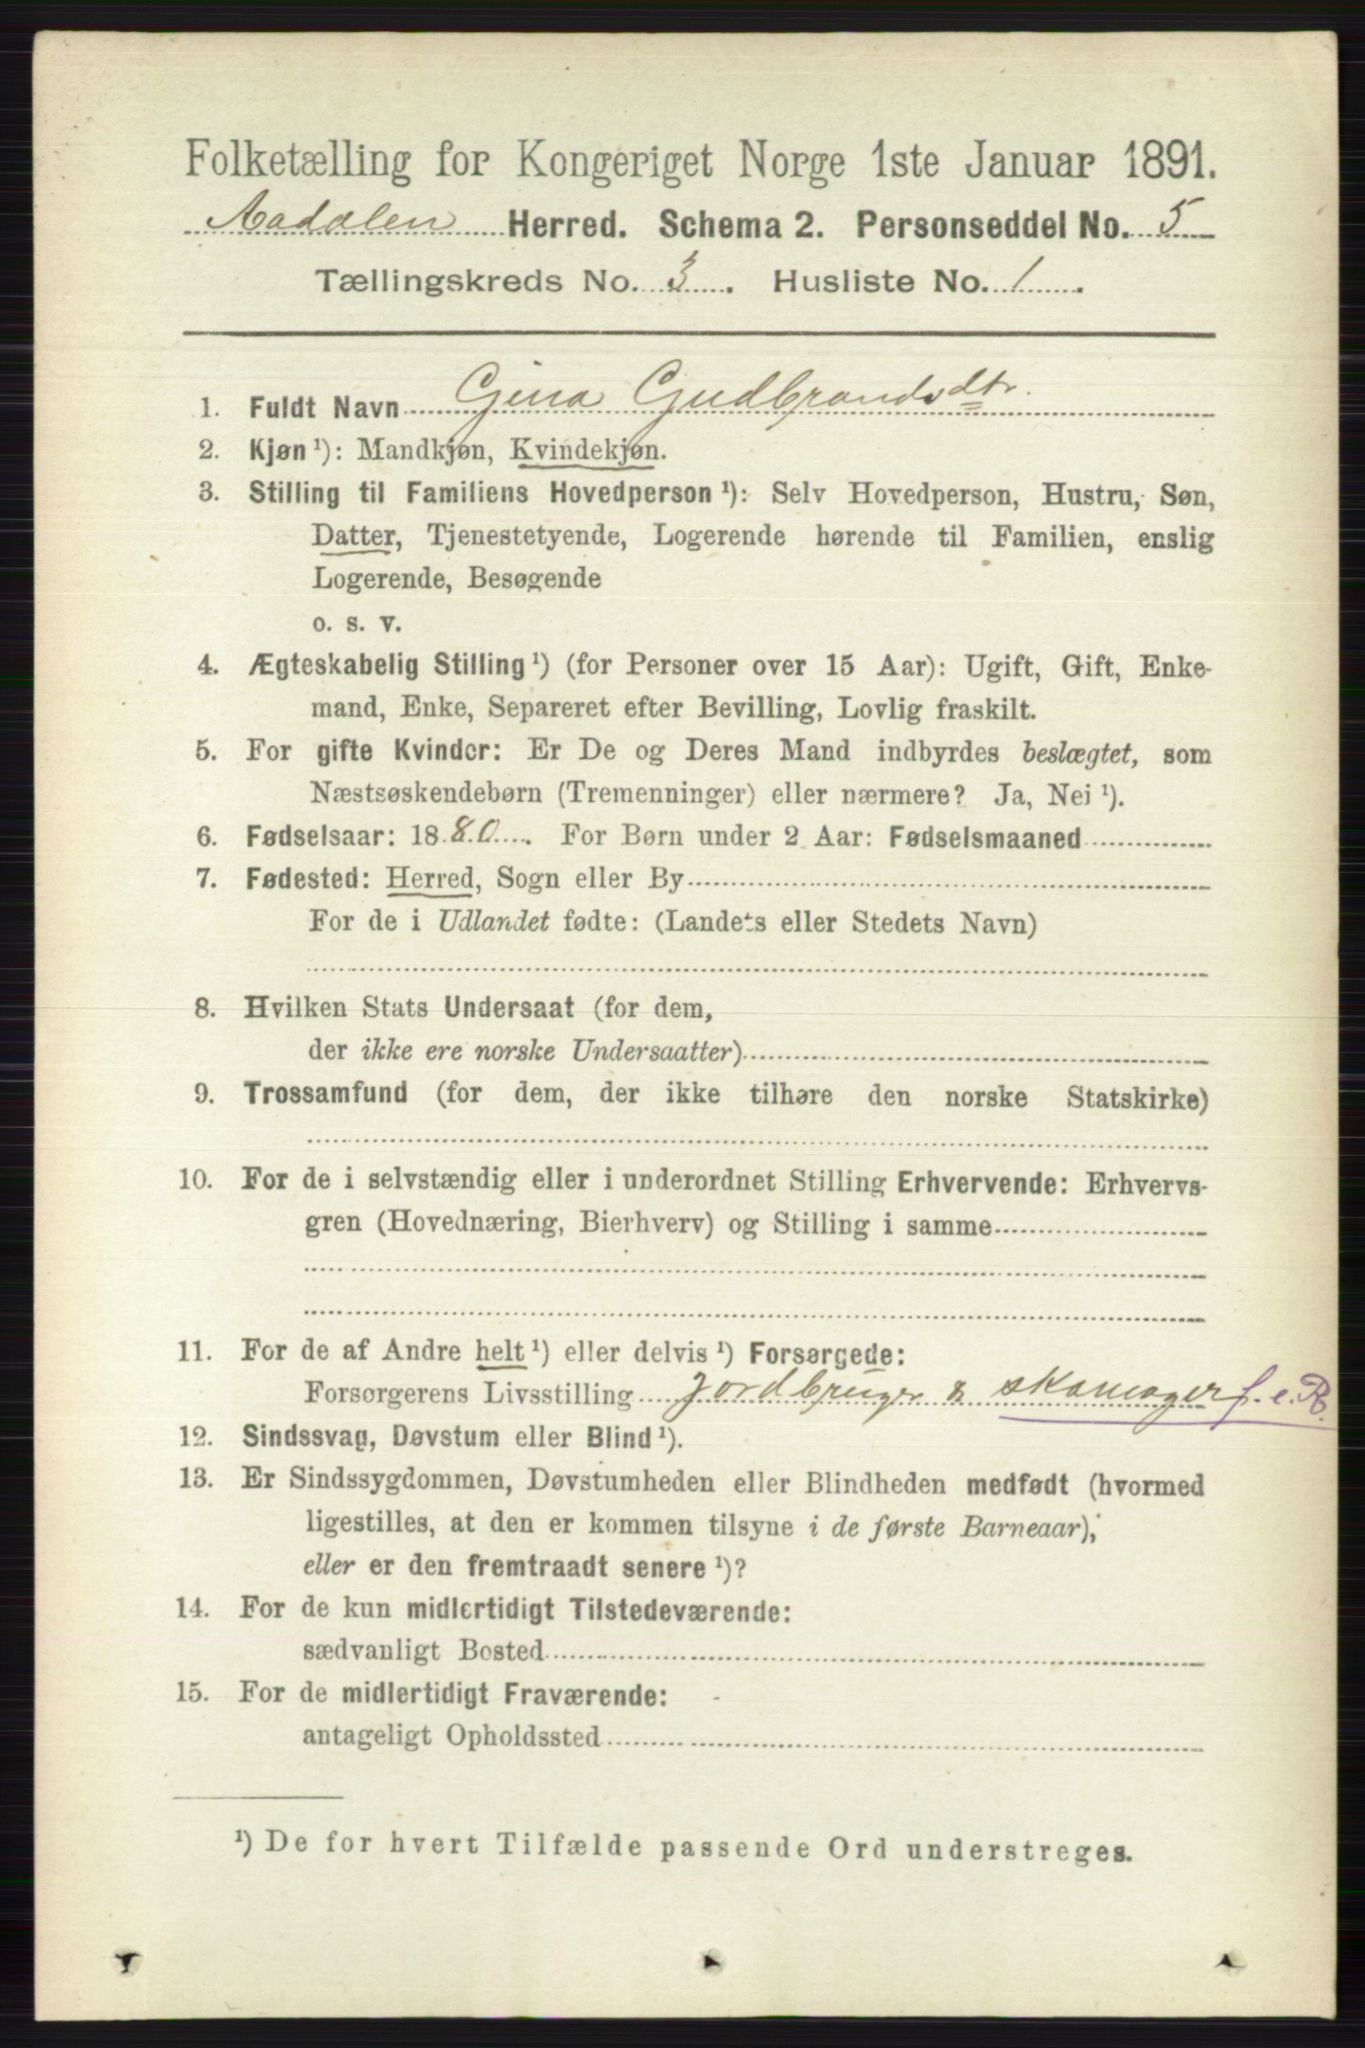 Folketælling for Kongeriget Norge 1ste Januar 1891.
Aadalen Herred. Schema 2. Personseddel No. 5
Tællingskreds No. 3. Husliste No. 1.
1. Fuldt Navn Gina Gudbrandsdtr.
2. Kjøn¹): Mandkjøn, Kvindekjøn.
3. Stilling til Familiens Hovedperson¹): Selv Hovedperson, Hustru, Søn,
Datter, Tjenestetyende, Logerende hørende til Familien, enslig
Logerende, Besøgende
o. s. v.
4. Ægteskabelig Stilling¹) (for Personer over 15 Aar): Ugift, Gift, Enke-
mand, Enke, Separeret efter Bevilling, Lovlig fraskilt.
5. For gifte Kvinder: Er De og Deres Mand indbyrdes beslægtet, som
Næstsøskendebørn (Tremenninger) eller nærmere? Ja, Nei¹).
6. Fødselsaar: 1880. For Børn under 2 Aar: Fødselsmaaned
7. Fødested: Herred, Sogn eller By
For de i Udlandet fødte: (Landets eller Stedets Navn)
8. Hvilken Stats Undersaat (for dem,
der ikke ere norske Undersaatter)
9. Trossamfund (for dem, der ikke tilhøre den norske Statskirke)
10. For de i selvstændig eller i underordnet Stilling Erhvervende: Erhvervs-
gren (Hovednæring, Bierhverv) og Stilling i samme
11. For de af Andre helt¹) eller delvis¹) Forsørgede:
Forsørgerens Livsstilling Jordbruger & skomager f. e. R.
12. Sindssvag, Døvstum eller Blind¹).
13. Er Sindssygdommen, Døvstumheden eller Blindheden medfødt (hvormed
ligestilles, at den er kommen tilsyne i de første Barneaar),
eller er den fremtraadt senere¹)?
14. For de kun midlertidigt Tilstedeværende:
sædvanligt Bosted
15. For de midlertidigt Fraværende:
antageligt Opholdssted
¹) De for hvert Tilfælde passende Ord understreges.